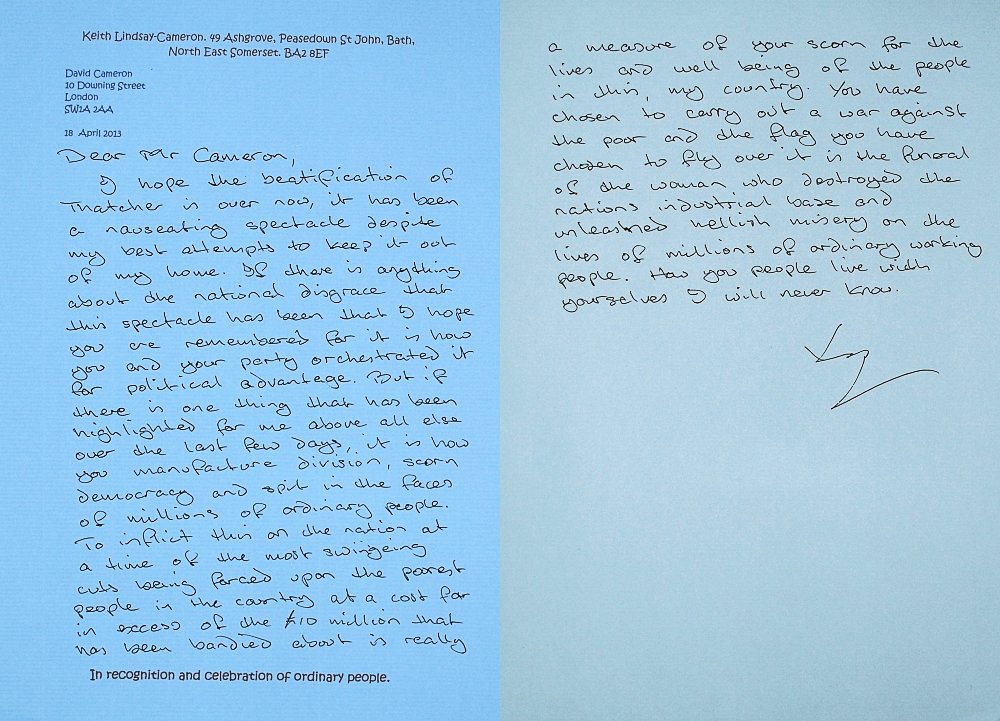 Keith Lindsay-Cameron. 49 Ashgrove, Peasedown St John, Bath,
North East Somerset. BA2 8EF
David Cameron
10 Downing Street
London
SW1A 2AA
18 April 2013
Dear Mr Cameron,
I hope the beatification of
Thatcher is over now, it has been
a nauseating spectacle despite
my best attempts to keep it out
of my home. If there is anything
about the national disgrace that
this spectacle has been that I hope
you are remembered for it is how
you and your party orchestrated it
for political advantage. But if
there is one thing that has been
highlighted for me above all else
over the last few days, it is how
you manufacture division, scorn
democracy and spit in the faces
of millions of ordinary people.
To inflict this on the nation at
a time of the most swingeing
cuts being forced upon the poorest
people in the country at a cost far
in excess of the £10 million that
has been bandied about is really
In recognition and celebration of ordinary people.
a measure of your scorn for the
lives and well being of the people
in this, my country. You have
chosen to carry out a war against
the poor and the flag you have
chosen to fly over it is the funeral
of the woman who destroyed the
nations industrial base and
unleashed hellish misery on the
lives of millions of ordinary working
people. How you people live with
yourselves I will never know.